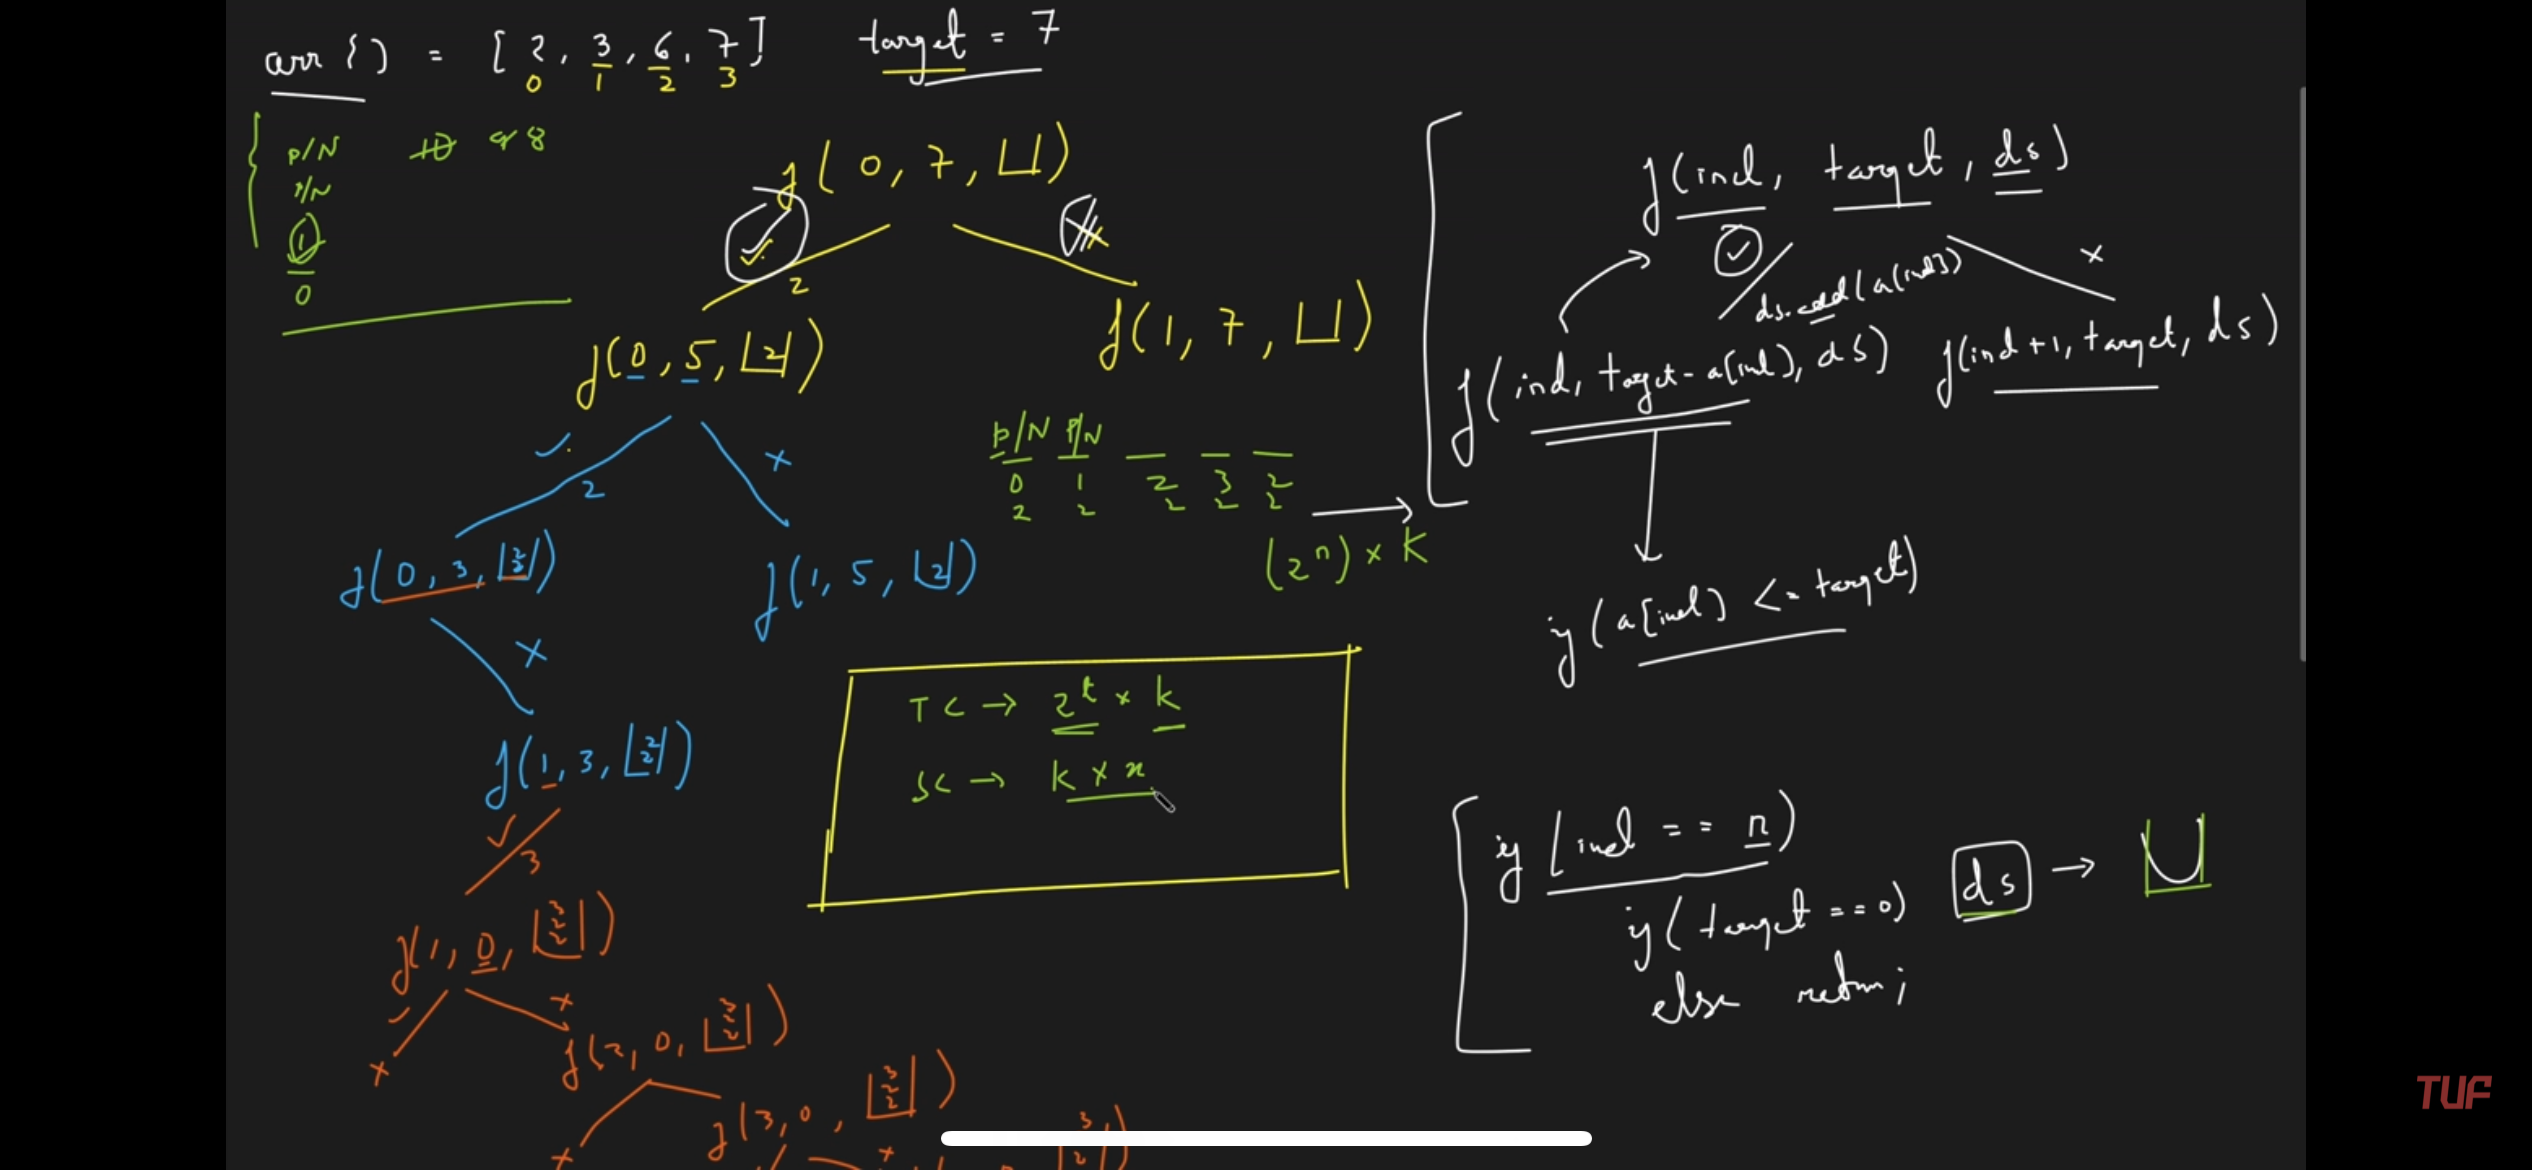 arr {) = [ 2, 3, 6, 7 ] target = 7
0 1 2 3
P/N 10 9 8
P/N
1
0
f( 0, 7, ⊔ )
✓ 2 ×
f( 0, 5, |2| ) f( 1, 7, ⊔ )
✓ 2 ×
f( 0, 3, |2 2| ) f( 1, 5, |2| )
×
f( 1, 3, |2 2| )
✓ 3
f( 1, 0, |3 2 2| )
✓ × ×
f( 2, 0, |3 2 2| )
×
f( 3, 0, |3 2 2| )
×
P/N P/N _ _ _
0 1 2 3 2
2 2 2 2 2
→
(2^n) × K
TC → 2^t × k
SC → k × x
f(ind, target, ds)
✓ ds.add(a[ind]) ×
f(ind, target - a[ind], ds) f(ind+1, target, ds)
if (a[ind] <= target)
if (ind == n)
if (target == 0) ds →
else return;
TUF